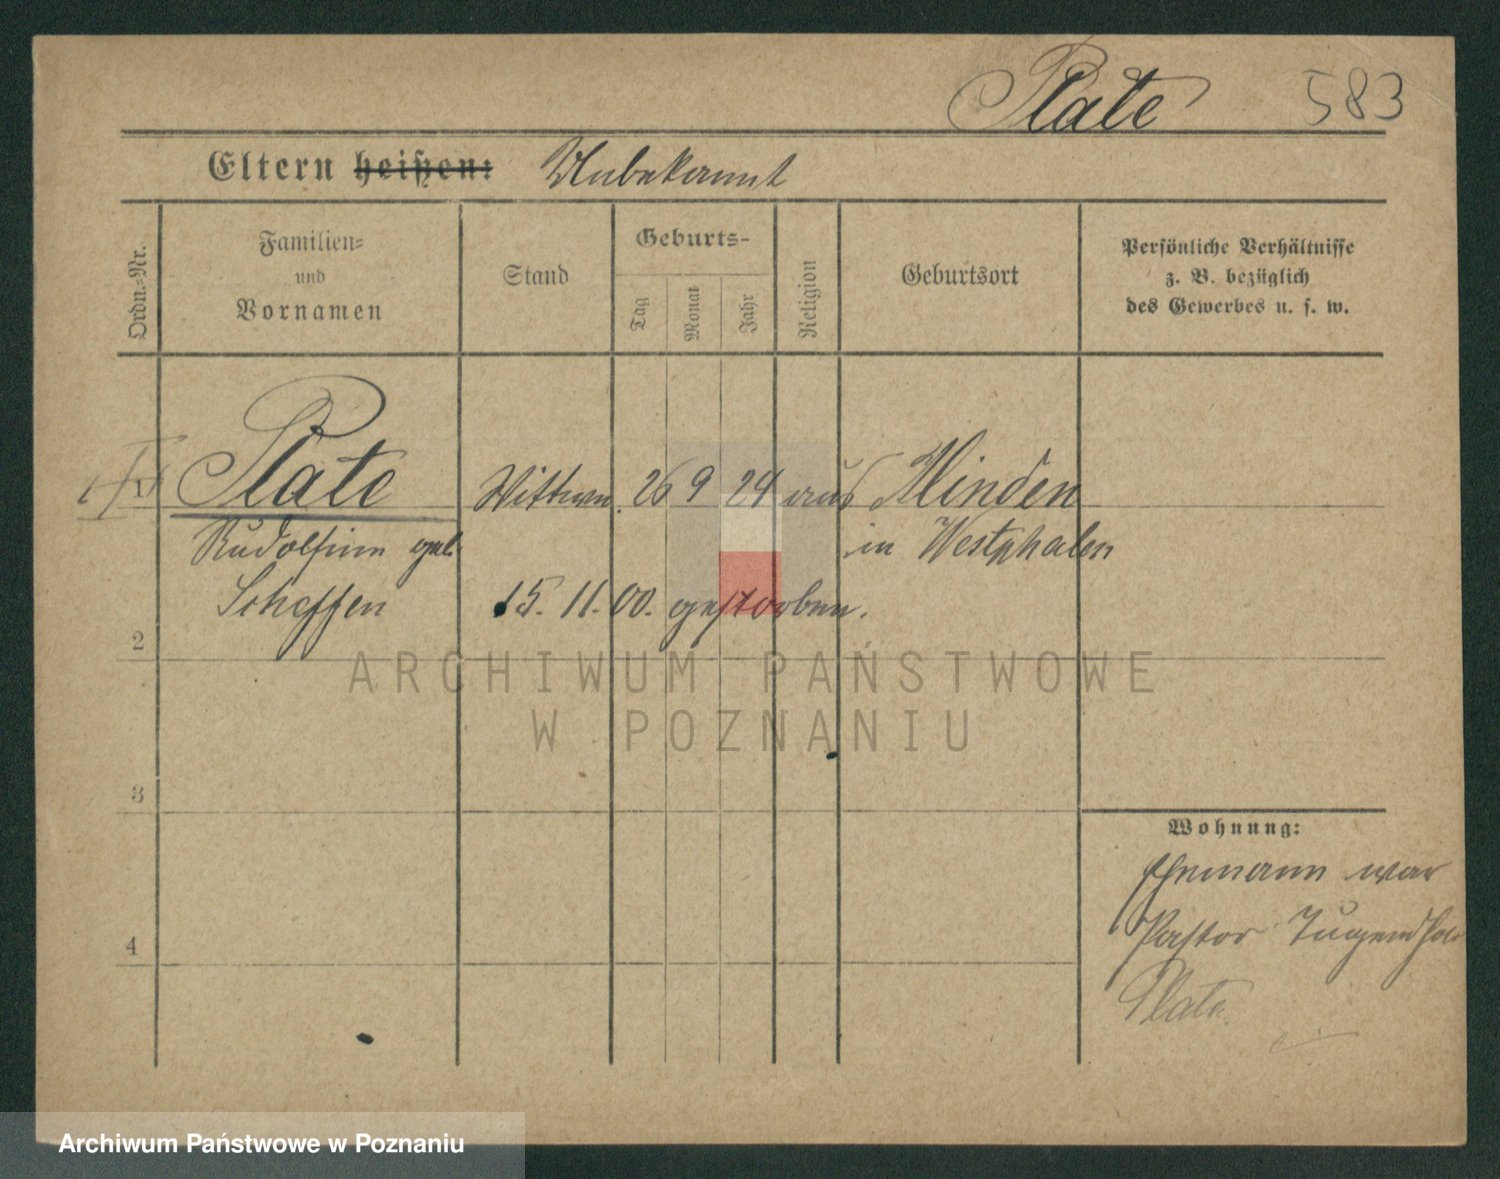 Plate 583
Eltern heißen: Unbekannt
Ordn.-Nr.
Familien-
und
Vornamen
Stand
Geburts-
Tag
Monat
Jahr
Religion
Geburtsort
Persönliche Verhältnisse
z. B. bezüglich
des Gewerbes u. s. w.
1 Plate Wittwe 26 9 24 aus Minden
Rudolfine geb. in Westphalen
Scheffen 15. 11. 00. gestorben.
2
ARCHIWUM PAŃSTWOWE
W POZNANIU
3
Wohnung:
Ehemann war
4 Pastor
Plate
Archiwum Państwowe w Poznaniu